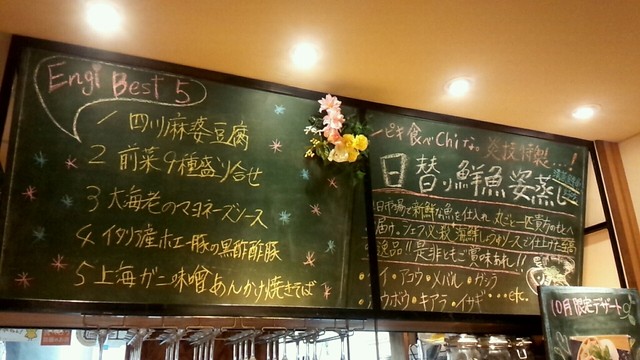 Engi Best 5
1 四川麻婆豆腐
2 前菜9種盛り合せ
3 大海老のマヨネーズソース
4 イタリア産ホエー豚の黒酢酢豚
5 上海ガニ味噌あんかけ焼きそば
一ピキ食べChiな。炎技特製...!
日替り鮮魚姿蒸し
日市場で新鮮な魚を仕入れ 丸ごと一匹貴方のもとへ
届け。シェフ必殺海鮮しょうゆソースで仕上げた至高
逸品!!是非ともご賞味あれ!!
イ・アコウ・メバル・ガシラ
ウボウ・キアラ・イサギ・・・・etc.
10月限定デザート